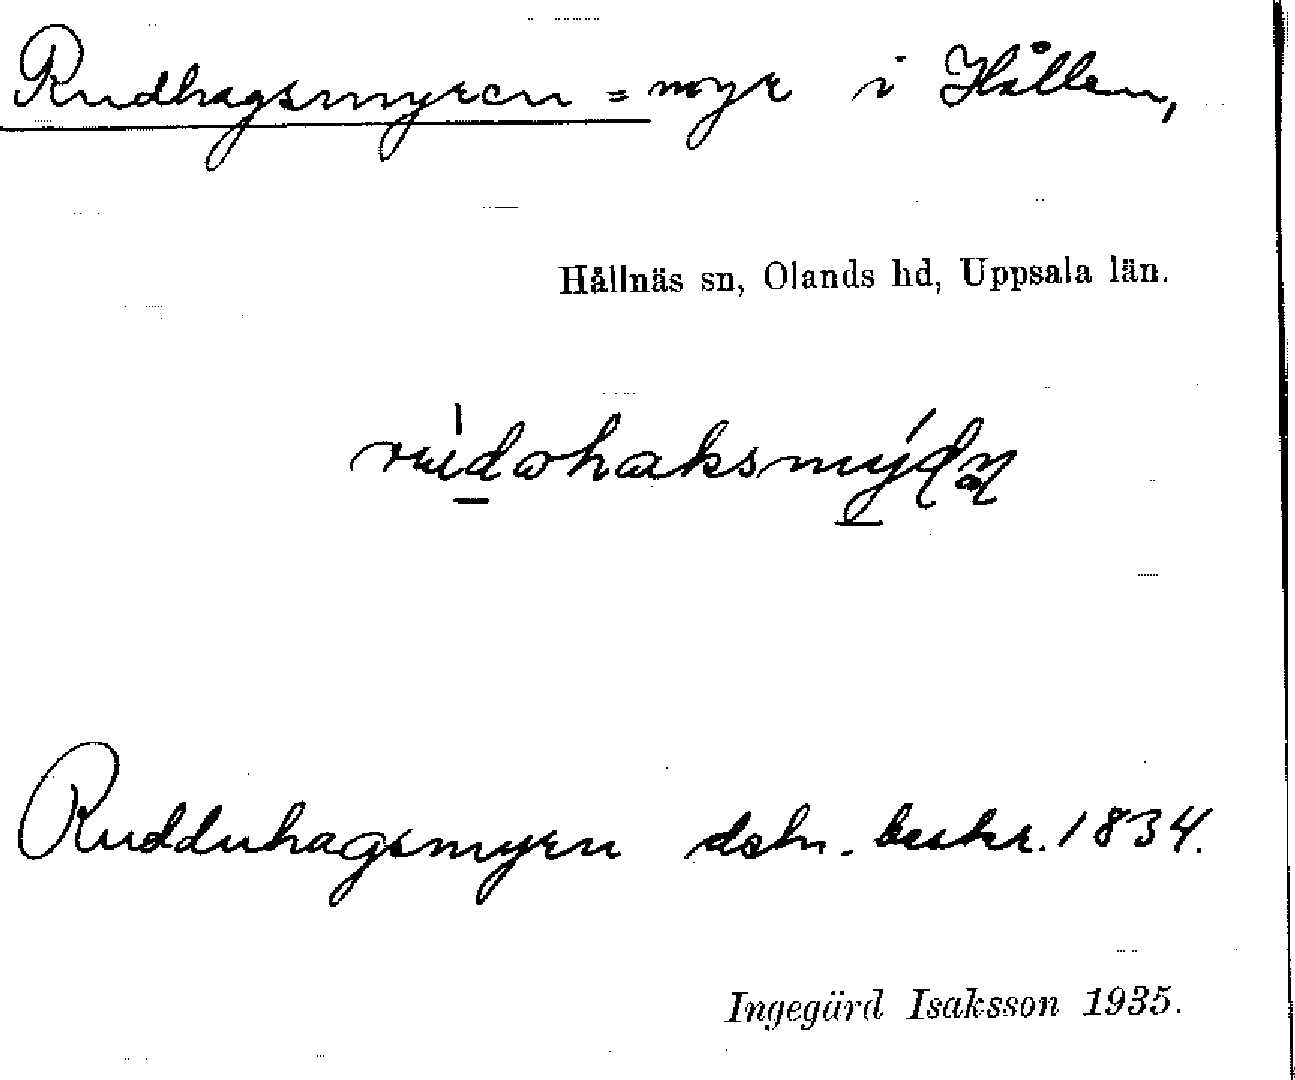 Rudhagsmyren = myr i Hållen,
Hållnäs sn, Olands hd, Uppsala län.
Rudduhagsmyren dsbn. beskr. 1834.
Ingegärd Isaksson 1935.